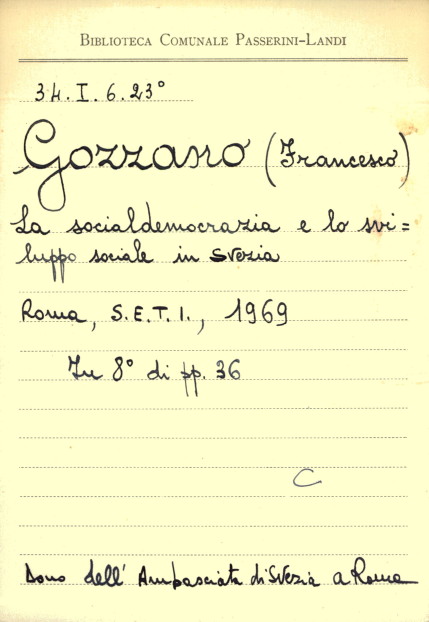 BIBLIOTECA COMUNALE PASSERINI-LANDI
34. I. 6. 23°
Gozzano (Francesco)
La socialdemocrazia e lo svi=
luppo sociale in Svezia
Roma, S.E.T.I., 1969
In 8° di pp. 36
C
Dono dell' Ambasciata di Svezia a Roma